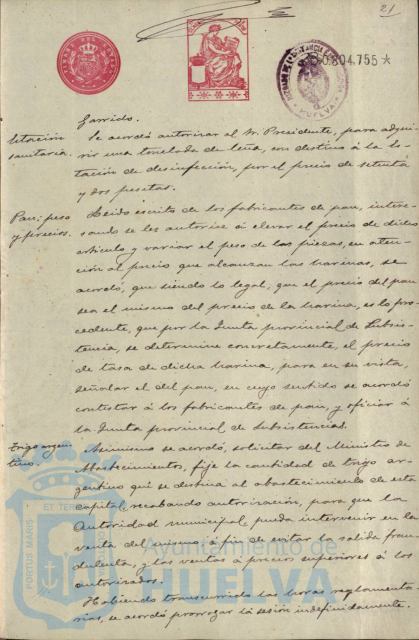 21
0.804.755 *
HUELVA
Garrido.
Estación sanitaria. Se acordó autorizar al Sr. Presidente, para adqui-
rir una tonelada de leña, con destino á la Es-
tación de desinfección, por el precio de setenta
y dos pesetas.
Pan: peso y precios. Leido escrito de los fabricantes de pan, intere-
sando se les autorice á elevar el precio de dicho
artículo y variar el peso de las piezas, en aten-
ción al precio que alcanzan las harinas, se
acordó, que siendo lo legal, que el precio del pan
sea el mismo del precio de la harina, es lo pro-
cedente, que por la Junta provincial de Subsis-
tencia, se determine concretamente, el precio
de tasa de dicha harina, para en su vista,
señalar el del pan, en cuyo sentido se acordó
contestar á los fabricantes de pan, y oficiar á
la Junta provincial de Subsistencias.
Trigo argentino. Asimismo se acordó, solicitar del Ministro de
Abastecimientos, fije la cantidad de trigo ar-
gentino que se destina al abastecimiento de esta
capital, recabando autorización, para que la
Autoridad municipal, pueda intervenir en la
venta del mismo, á fin de evitar la salida frau-
dulenta, y las ventas á precios superiores á los
autorizados.
Habiendo transcurrido las horas reglamenta-
rias, se acordó prorrogar la sesión indefinidamente.
PORTUS MARIS ET TERRE
Ayuntamiento de
HUELVA